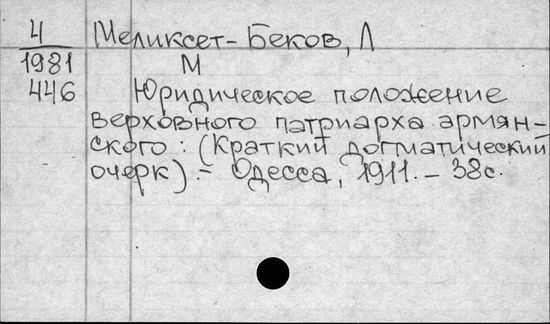 Ч Меликсет-Беков, Л
1981 М
446 Юридическое положение
верховного патриарха армян-
ского : (Краткий догматический
очерк) - Одесса, 1911. - 38с.